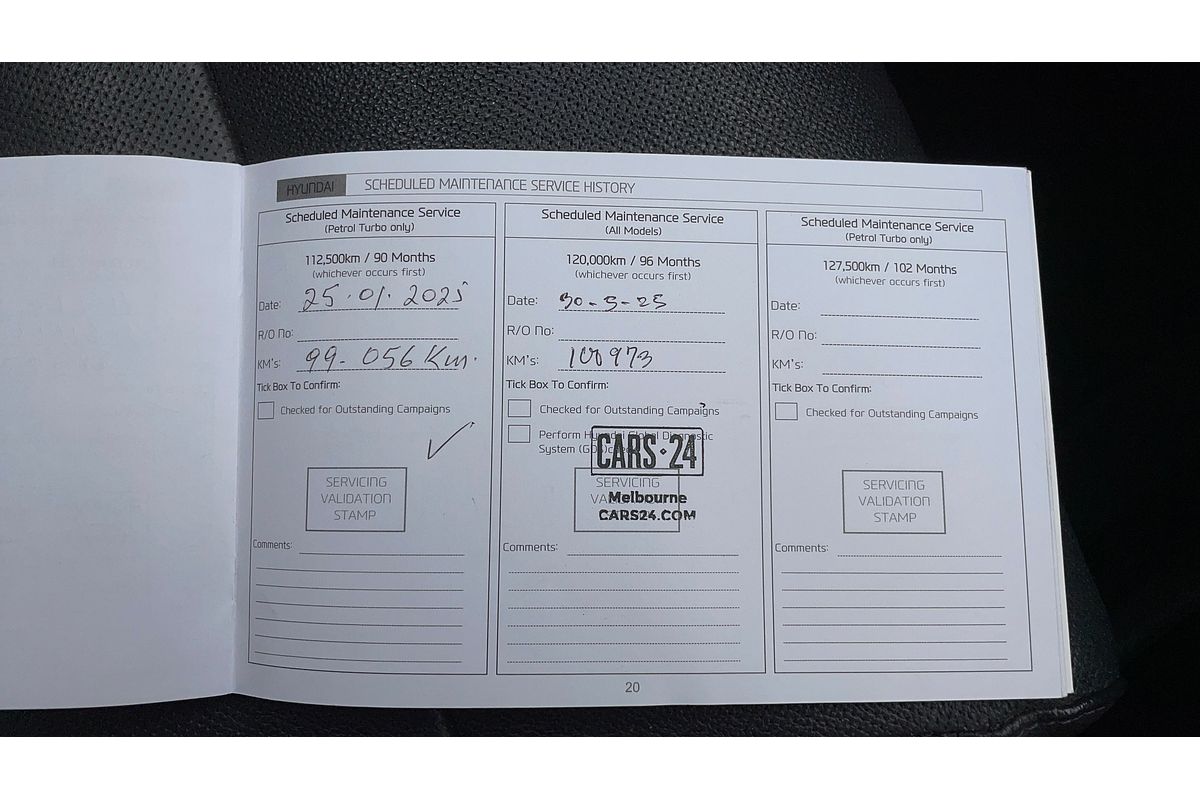 HYUNDAI SCHEDULED MAINTENANCE SERVICE HISTORY
Scheduled Maintenance Service
(Petrol Turbo only)
112,500km / 90 Months
(whichever occurs first)
Date: 25.01.2025
R/O No:
KM's: 99-056 Km.
Tick Box To Confirm:
Checked for Outstanding Campaigns
SERVICING
VALIDATION
STAMP
Comments:
Scheduled Maintenance Service
(All Models)
120,000km / 96 Months
(whichever occurs first)
Date: 30-5-25
R/O No:
KM's: 100973
Tick Box To Confirm:
Checked for Outstanding Campaigns
Perform Hyundai Global Diagnostic
System (GDS)check
CARS·24
SERVICING
VALIDATION
STAMP
Melbourne
CARS24.COM
Comments:
Scheduled Maintenance Service
(Petrol Turbo only)
127,500km / 102 Months
(whichever occurs first)
Date:
R/O No:
KM's:
Tick Box To Confirm:
Checked for Outstanding Campaigns
SERVICING
VALIDATION
STAMP
Comments:
20